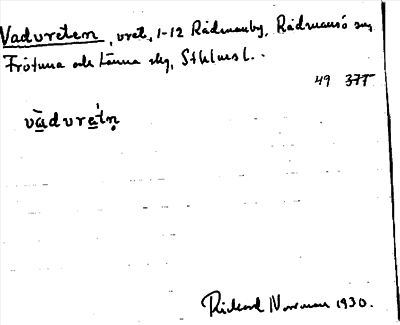 Vadvreten, vret, 1-12 Rådmanby, Rådmansö sn,
Frötuna och Länna slg, Sthlms l.
49 377
vàdvra̱tṇ
Rickard Norrman 1930.